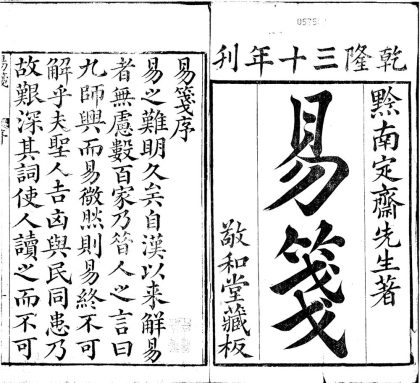 乾隆三十年刊
黔南定齋先生著
易箋
敬和堂藏板
易箋序
易之難明久矣自漢以来解易
者無慮數百家乃昔人之言曰
九師興而易微然則易終不可
解乎夫聖人吉凶與民同患乃
故艱深其詞使人讀之而不可
易箋